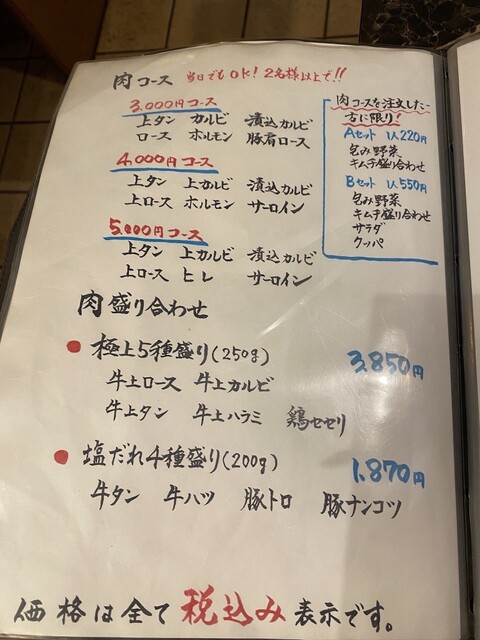 肉コース 当日でもOK! 2名様以上で!!
3,000円コース
上タン カルビ 漬込カルビ
ロース ホルモン 豚肩ロース
4,000円コース
上タン 上カルビ 漬込カルビ
上ロース ホルモン サーロイン
5,000円コース
上タン 上カルビ 漬込カルビ
上ロース ヒレ サーロイン
肉コースを注文した
方に限り!
Aセット 1人220円
包み野菜
キムチ盛り合わせ
Bセット 1人550円
包み野菜
キムチ盛り合わせ
サラダ
クッパ
肉盛り合わせ
極上5種盛り(250g) 3,850円
牛上ロース 牛上カルビ
牛上タン 牛上ハラミ 鶏セセリ
塩だれ4種盛り(200g) 1,870円
牛タン 牛ハツ 豚トロ 豚ナンコツ
価格は全て税込み表示です。